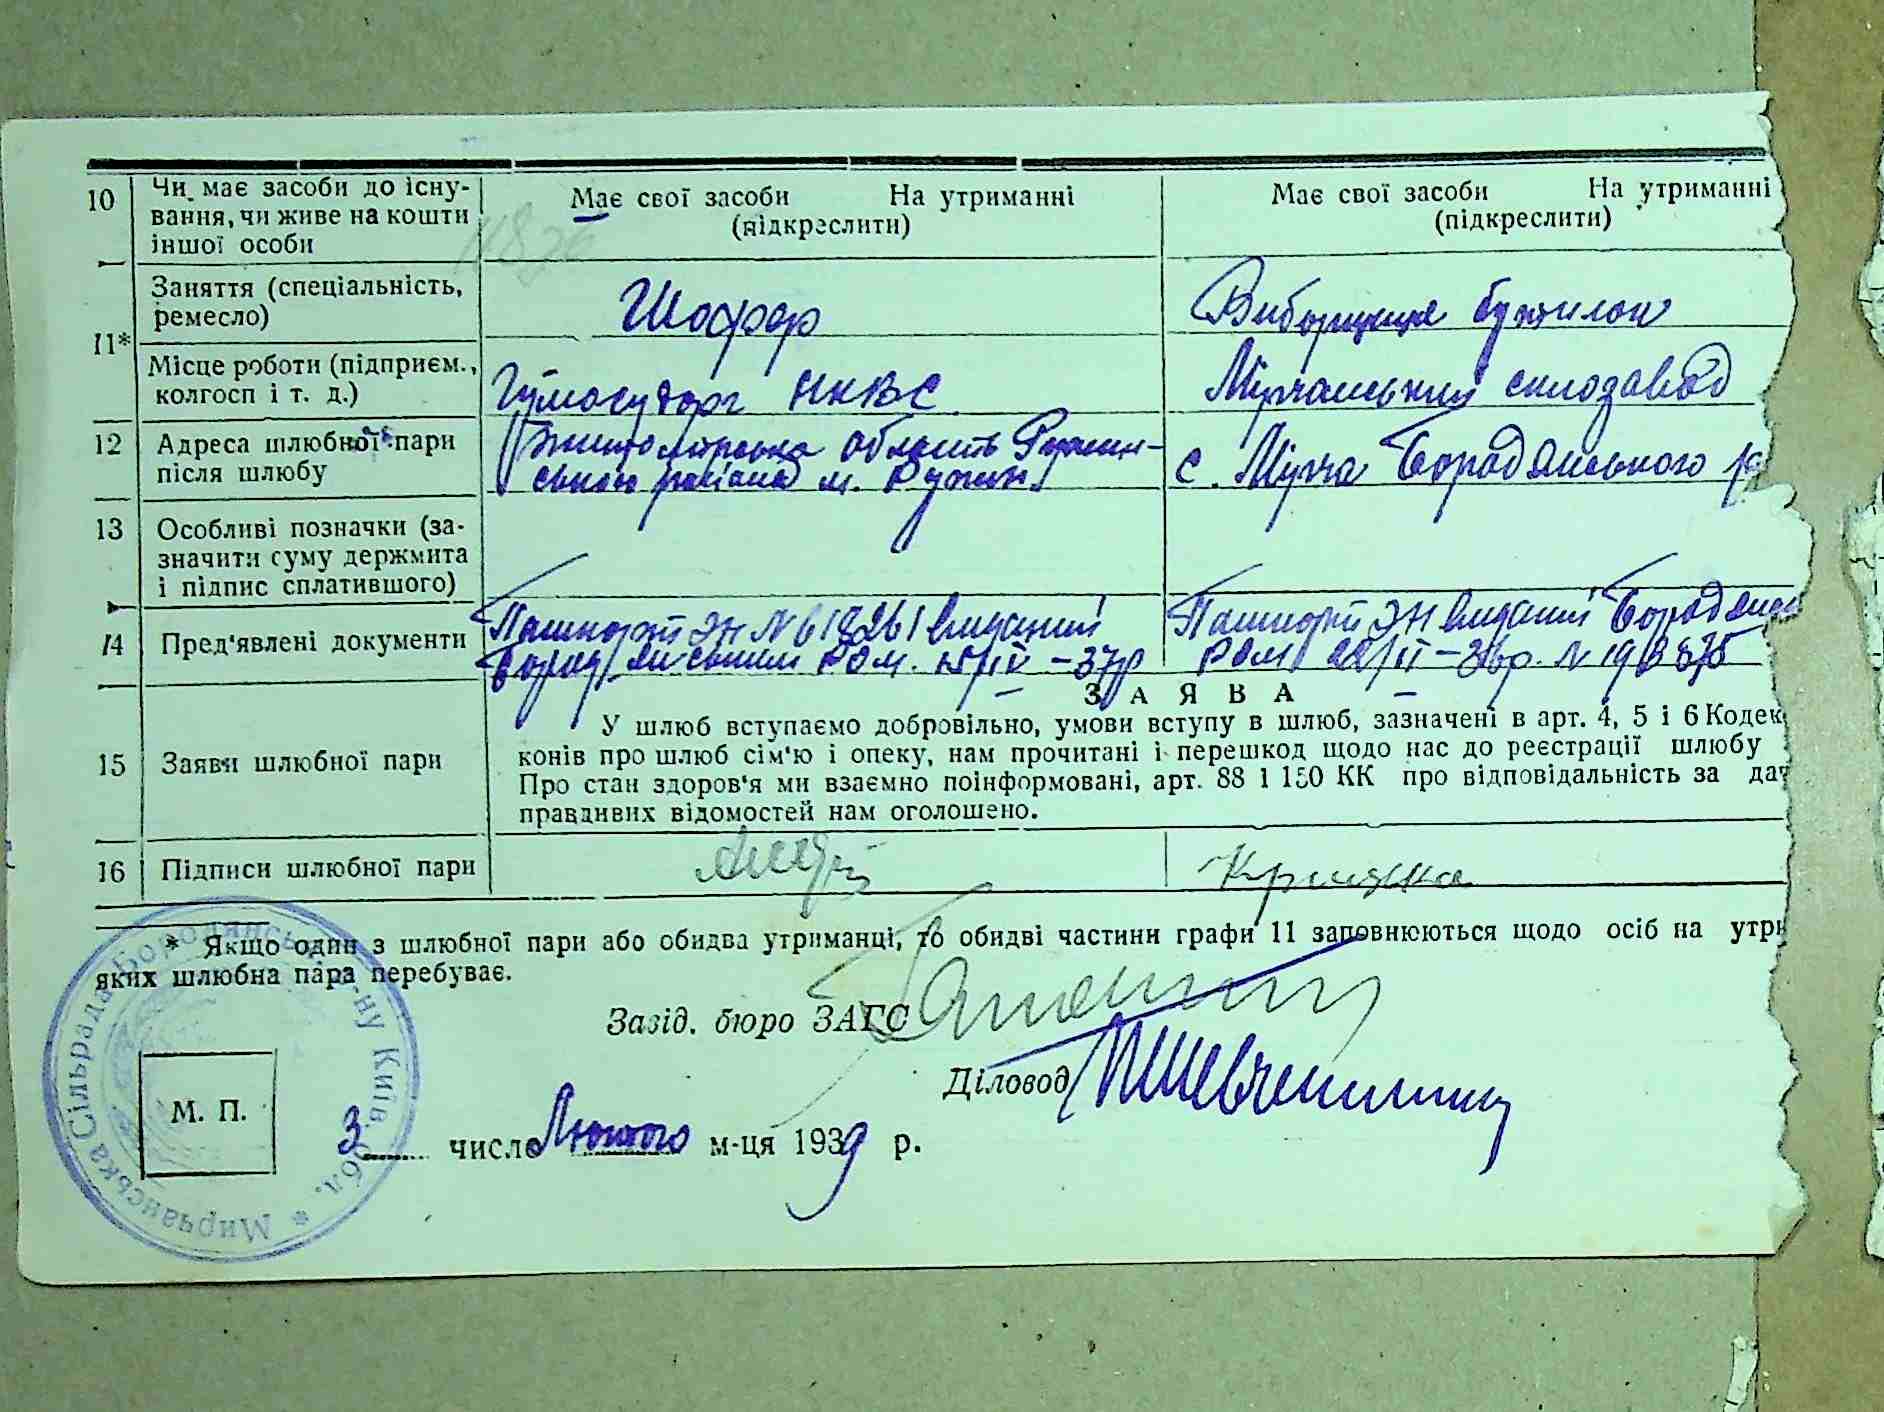 10 Чи має засоби до існу-
вання, чи живе на кошти
іншої особи
Має свої засоби На утриманні
(підкреслити)
Має свої засоби На утриманні
(підкреслити)
11*
Заняття (спеціальність,
ремесло)
Шофер
Виборщиця бутилок
Місце роботи (підприєм.,
колгосп і т. д.)
НКВС
Мірчанський склозавод
12 Адреса шлюбної пари
після шлюбу
Житомірська область Ружин-
ського району м. Ружин
с. Мірча Бородянського р
13 Особливі позначки (за-
значити суму держмита
і підпис сплатившого)
14 Пред'явлені документи
Пашпорт ЭН № 619261 виданий
Бородянським РОМ. 15/IV – 37р
Пашпорт ЭН виданий Бородянс
РОМ 22/II – 36р. N 193875
15 Заяви шлюбної пари
ЗАЯВА
У шлюб вступаємо добровільно, умови вступу в шлюб, зазначені в арт. 4, 5 і 6 Кодек
конів про шлюб сім'ю і опеку, нам прочитані і перешкод щодо нас до реєстрації шлюбу
Про стан здоров'я ми взаємно поінформовані, арт. 88 і 150 КК про відповідальність за дач
правдивих відомостей нам оголошено.
16 Підписи шлюбної пари
* Якщо один з шлюбної пари або обидва утриманці, то обидві частини графи 11 заповнюються щодо осіб на утри
яких шлюбна пара перебуває.
Завід. бюро ЗАГС
Діловод
М. П.
3 число Лютого м-ця 1939 р.
Мирчанська Сільрада Бородянськ. р-ну Київ. обл. *